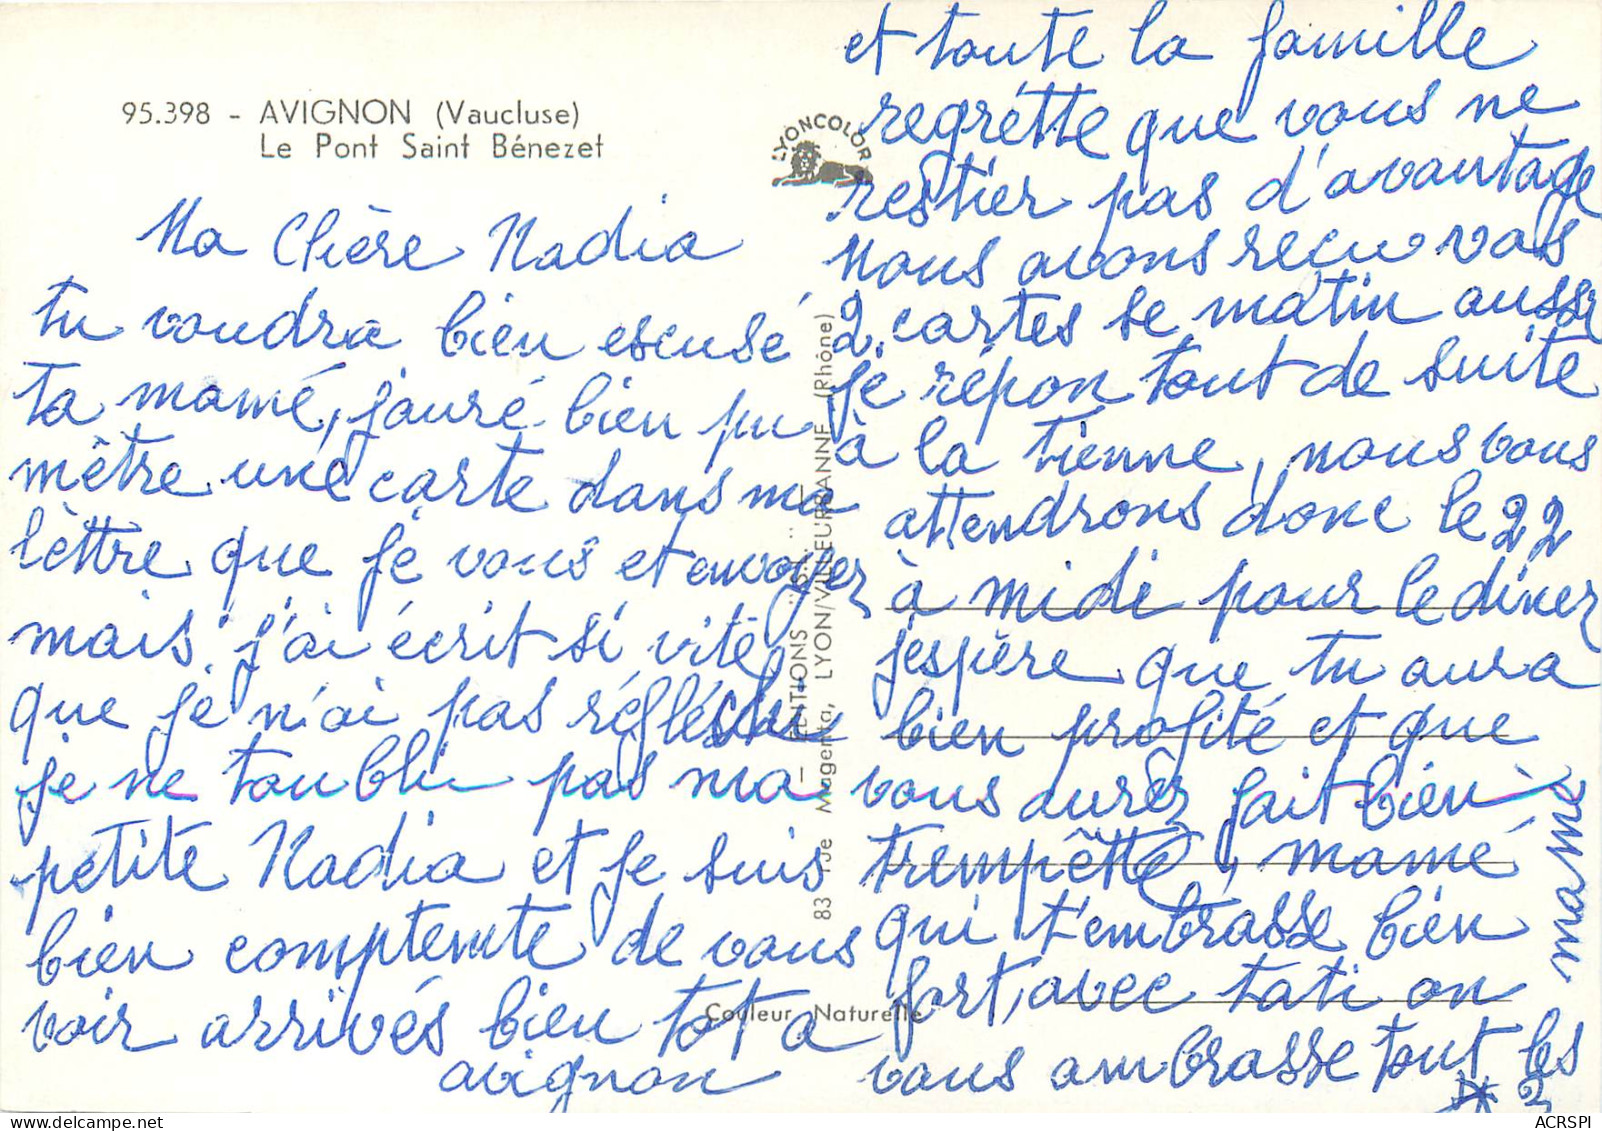 95.398 - AVIGNON (Vaucluse)
Le Pont Saint Bénezet
LYONCOLOR
Ma Chère Nadia
tu voudra bien escusé
ta mamé, j'auré bien pu
mètre une carte dans ma
lèttre que je vous et envoyer
mais j'ai écrit si vite
que je n'ai pas réfléchi
je ne t'oubli pas ma
petite Nadia et je suis
bien comptente de vous
voir arrivés bien tot a
avignon
et toute la famille
regrétte que vous ne
restier pas d'avantage
Nous avons recu vos
2 cartes se matin aussi
je répon tout de suite
à la tienne, nous vous
attendrons donc le 22
à midi pour le diner
j'espère que tu aura
bien profité et que
vous aurez fait bien
trempètte, mamé
qui t'embrasse bien
fort, avec tati on
vous ambrasse tout les
2
mamé
EDITIONS
83 rue Magenta, LYON/VILLEURBANNE (Rhône)
Couleur Naturelle
ACRSPI